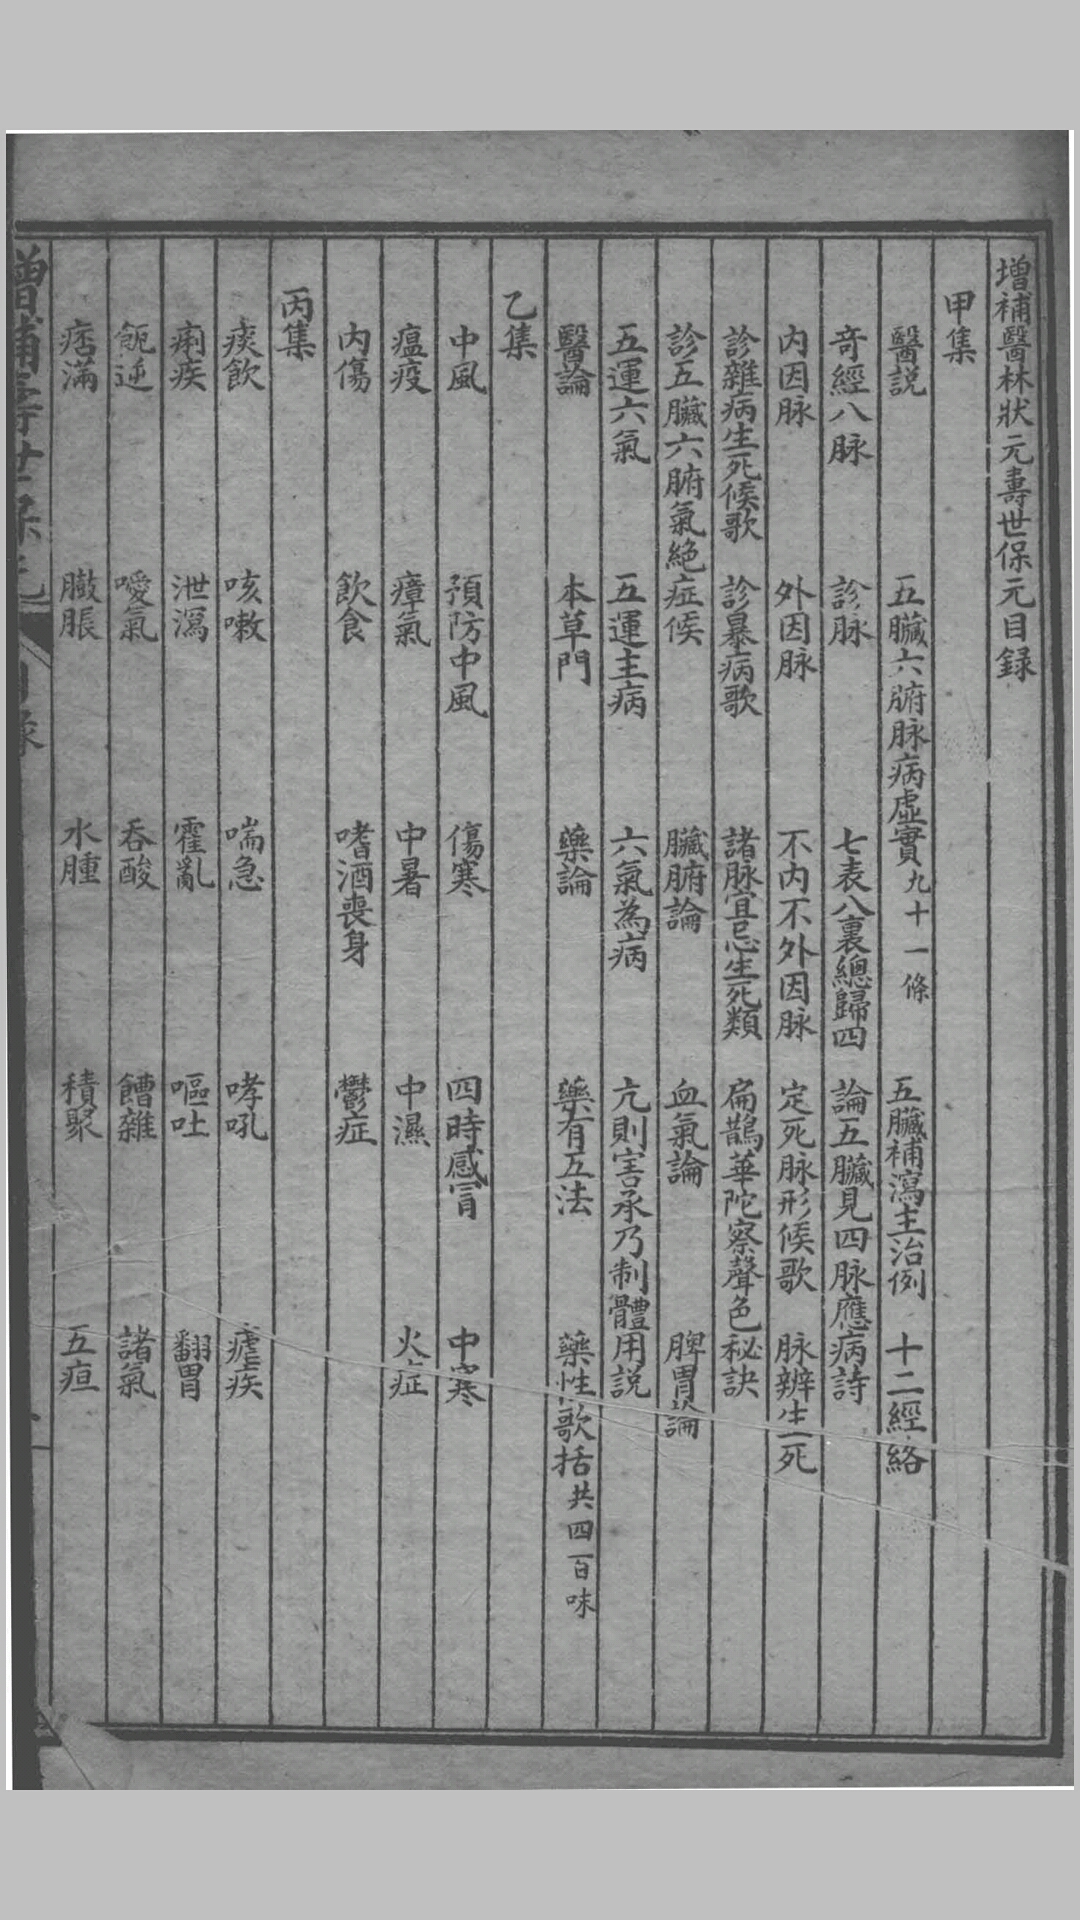 增補醫林狀元壽世保元目録
甲集
醫説 五臟六腑脉病虛實九十一條 五臟補瀉主治例 十二經絡
奇經八脉 診脉 七表八裏總歸四 論五臟見四脉應病詩
内因脉 外因脉 不内不外因脉 定死脉形候歌 脉辨生死
診雜病生死候歌 診暴病歌 諸脉宜忌生死類 扁鵲華陀察聲色秘訣
診五臟六腑氣絶症候 臟腑論 血氣論 脾胃論
五運六氣 五運主病 六氣為病 亢則害承乃制體用説
醫論 本草門 藥論 藥有五法 藥性歌括共四百味
乙集
中風 預防中風 傷寒 四時感冒 中寒
瘟疫 瘴氣 中暑 中濕 火症
内傷 飲食 嗜酒喪身 鬱症
丙集
痰飲 咳嗽 喘急 哮吼 瘧疾
痢疾 泄瀉 霍亂 嘔吐 翻胃
呃逆 噯氣 吞酸 饋雜 諸氣
痞滿 臌脹 水腫 積聚 五疸
增補壽世保元 目録